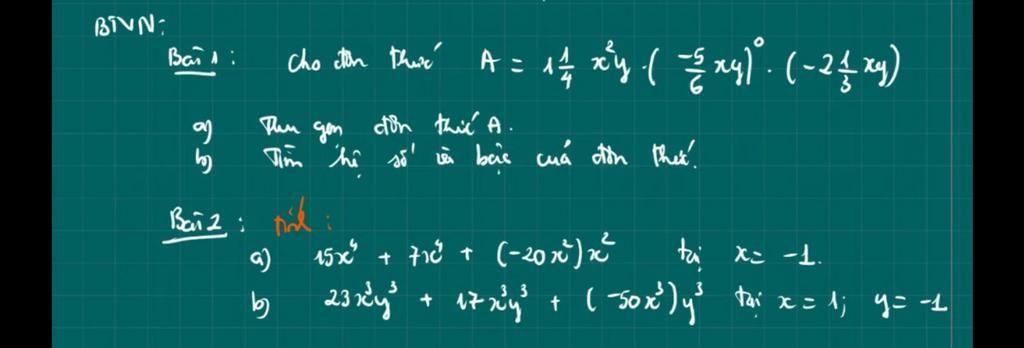 BTVN:
Bài 1: Cho đơn thức A = 1 1/4 x²y · (-5/6 xy)⁰ · (-2 1/3 xy)
a) Thu gọn đơn thức A.
b) Tìm hệ số và bậc của đơn thức.
Bài 2: Tính:
a) 15x⁴ + 7x⁴ + (-20x²)x² tại x = -1.
b) 23x³y³ + 17x³y³ + (-50x³)y³ tại x = 1; y = -1